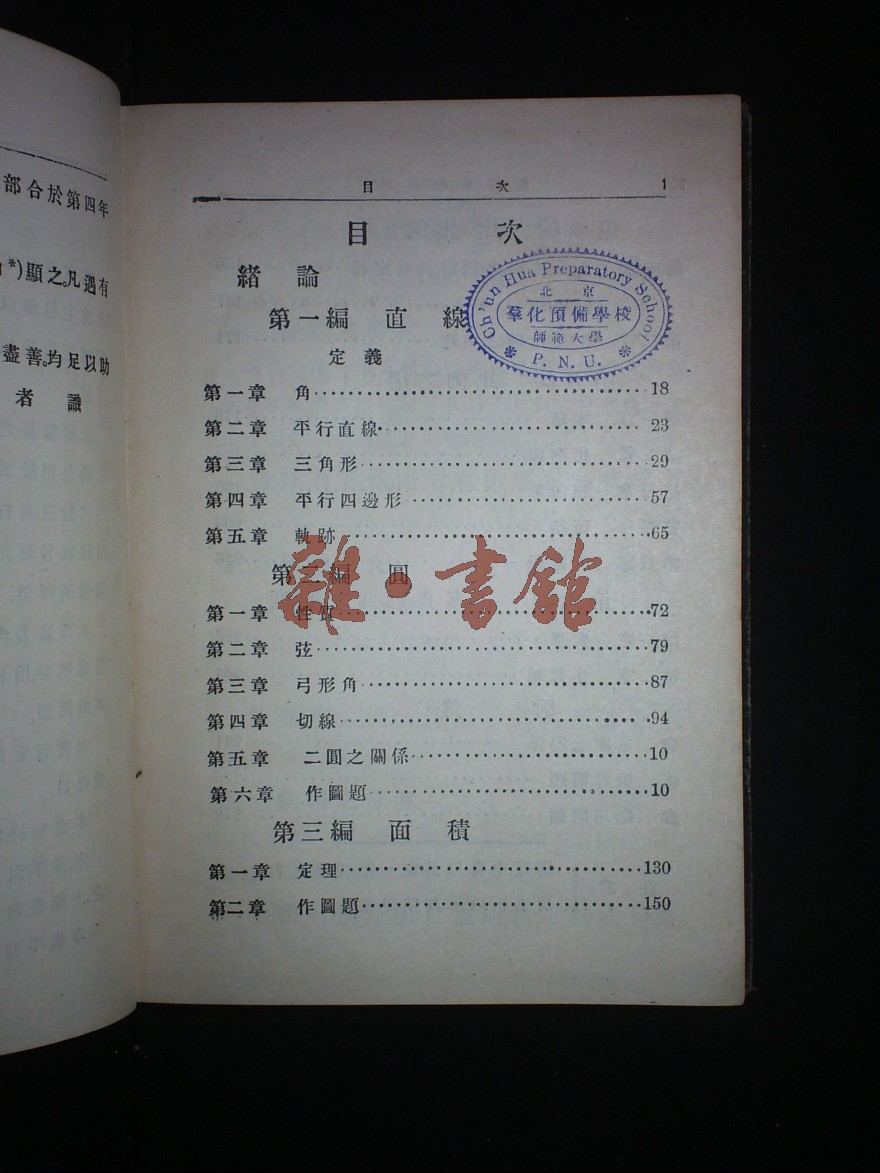 部合於第四年
)顯之。凡遇有
盡善。均足以助
者識
目次 1
目次
緒論
第一編 直線
定義
第一章 角 18
第二章 平行直線 23
第三章 三角形 29
第四章 平行四邊形 57
第五章 軌跡 65
第二編 圓
第一章 性質 72
第二章 弦 79
第三章 弓形角 87
第四章 切線 94
第五章 二圓之關係 10
第六章 作圖題 10
第三編 面積
第一章 定理 130
第二章 作圖題 150
Ch'un Hua Preparatory School
北京
羣化預備學校
師範大學
* P. N. U. *
雜·書館